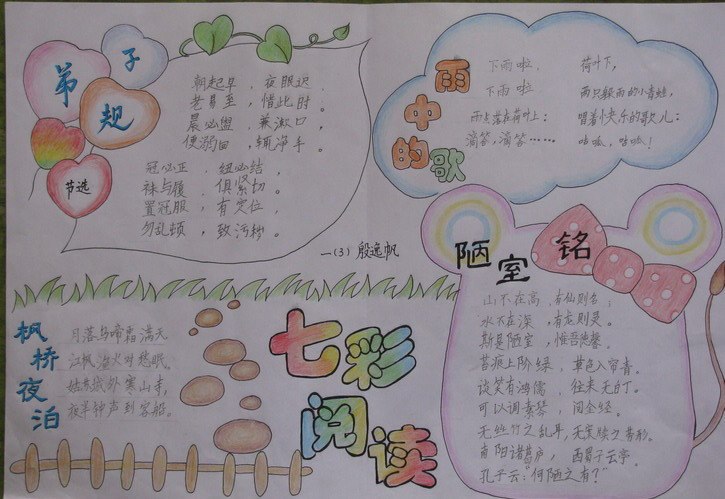 弟子规
节选
朝起早，夜眠迟。
老易至，惜此时。
晨必盥，兼漱口，
便溺回，辄净手。
冠必正，纽必结，
袜与履，俱紧切。
置冠服，有定位，
勿乱顿，致污秽。
一(3) 殷逸帆
雨中的歌
下雨啦，
下雨啦
雨点落在荷叶上：
滴答，滴答……
荷叶下，
两只躲雨的小青蛙，
唱着快乐的歌儿：
咕呱，咕呱！
陋室铭
山不在高，有仙则名；
水不在深，有龙则灵。
斯是陋室，惟吾德馨。
苔痕上阶绿，草色入帘青。
谈笑有鸿儒，往来无白丁。
可以调素琴，阅金经。
无丝竹之乱耳，无案牍之劳形。
南阳诸葛庐，西蜀子云亭。
孔子云：何陋之有?"
枫桥夜泊
月落乌啼霜满天
江枫渔火对愁眠。
姑苏城外寒山寺，
夜半钟声到客船。
七彩
阅读